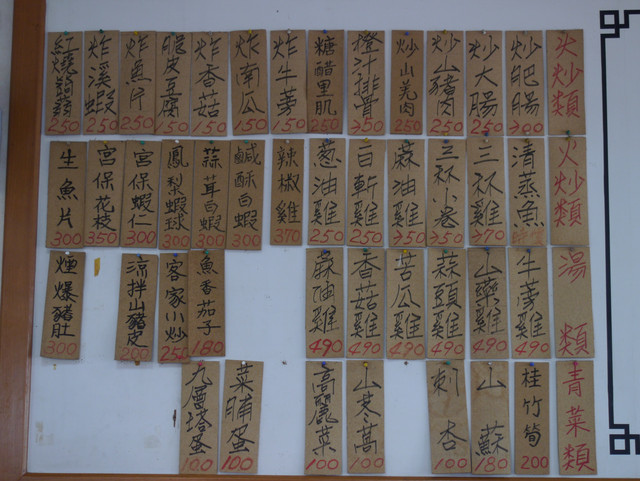 火炒類
炒肥腸
300
炒大腸
250
炒山豬肉
250
炒山羌肉
250
橙汁排骨
350
糖醋里肌
250
炸牛蒡
150
炸南瓜
150
炸香菇
150
脆皮豆腐
150
炸魚片
250
炸溪蝦
250
紅燒
250
火炒類
清蒸魚
三杯雞
370
三杯小卷
350
蔴油雞
350
白斬雞
250
葱油雞
250
辣椒雞
370
鹹酥白蝦
300
蒜茸白蝦
300
鳳梨蝦球
300
宮保蝦仁
300
宮保花枝
350
生魚片
300
湯類
牛蒡雞
490
山藥雞
490
蒜頭雞
490
苦瓜雞
490
香菇雞
490
蔴油雞
490
魚香茄子
180
客家小炒
250
涼拌山豬皮
200
煙爆豬肚
300
青菜類
桂竹筍
200
山蘇
180
刺杏
100
山茼蒿
100
高麗菜
100
菜脯蛋
100
九層塔蛋
100